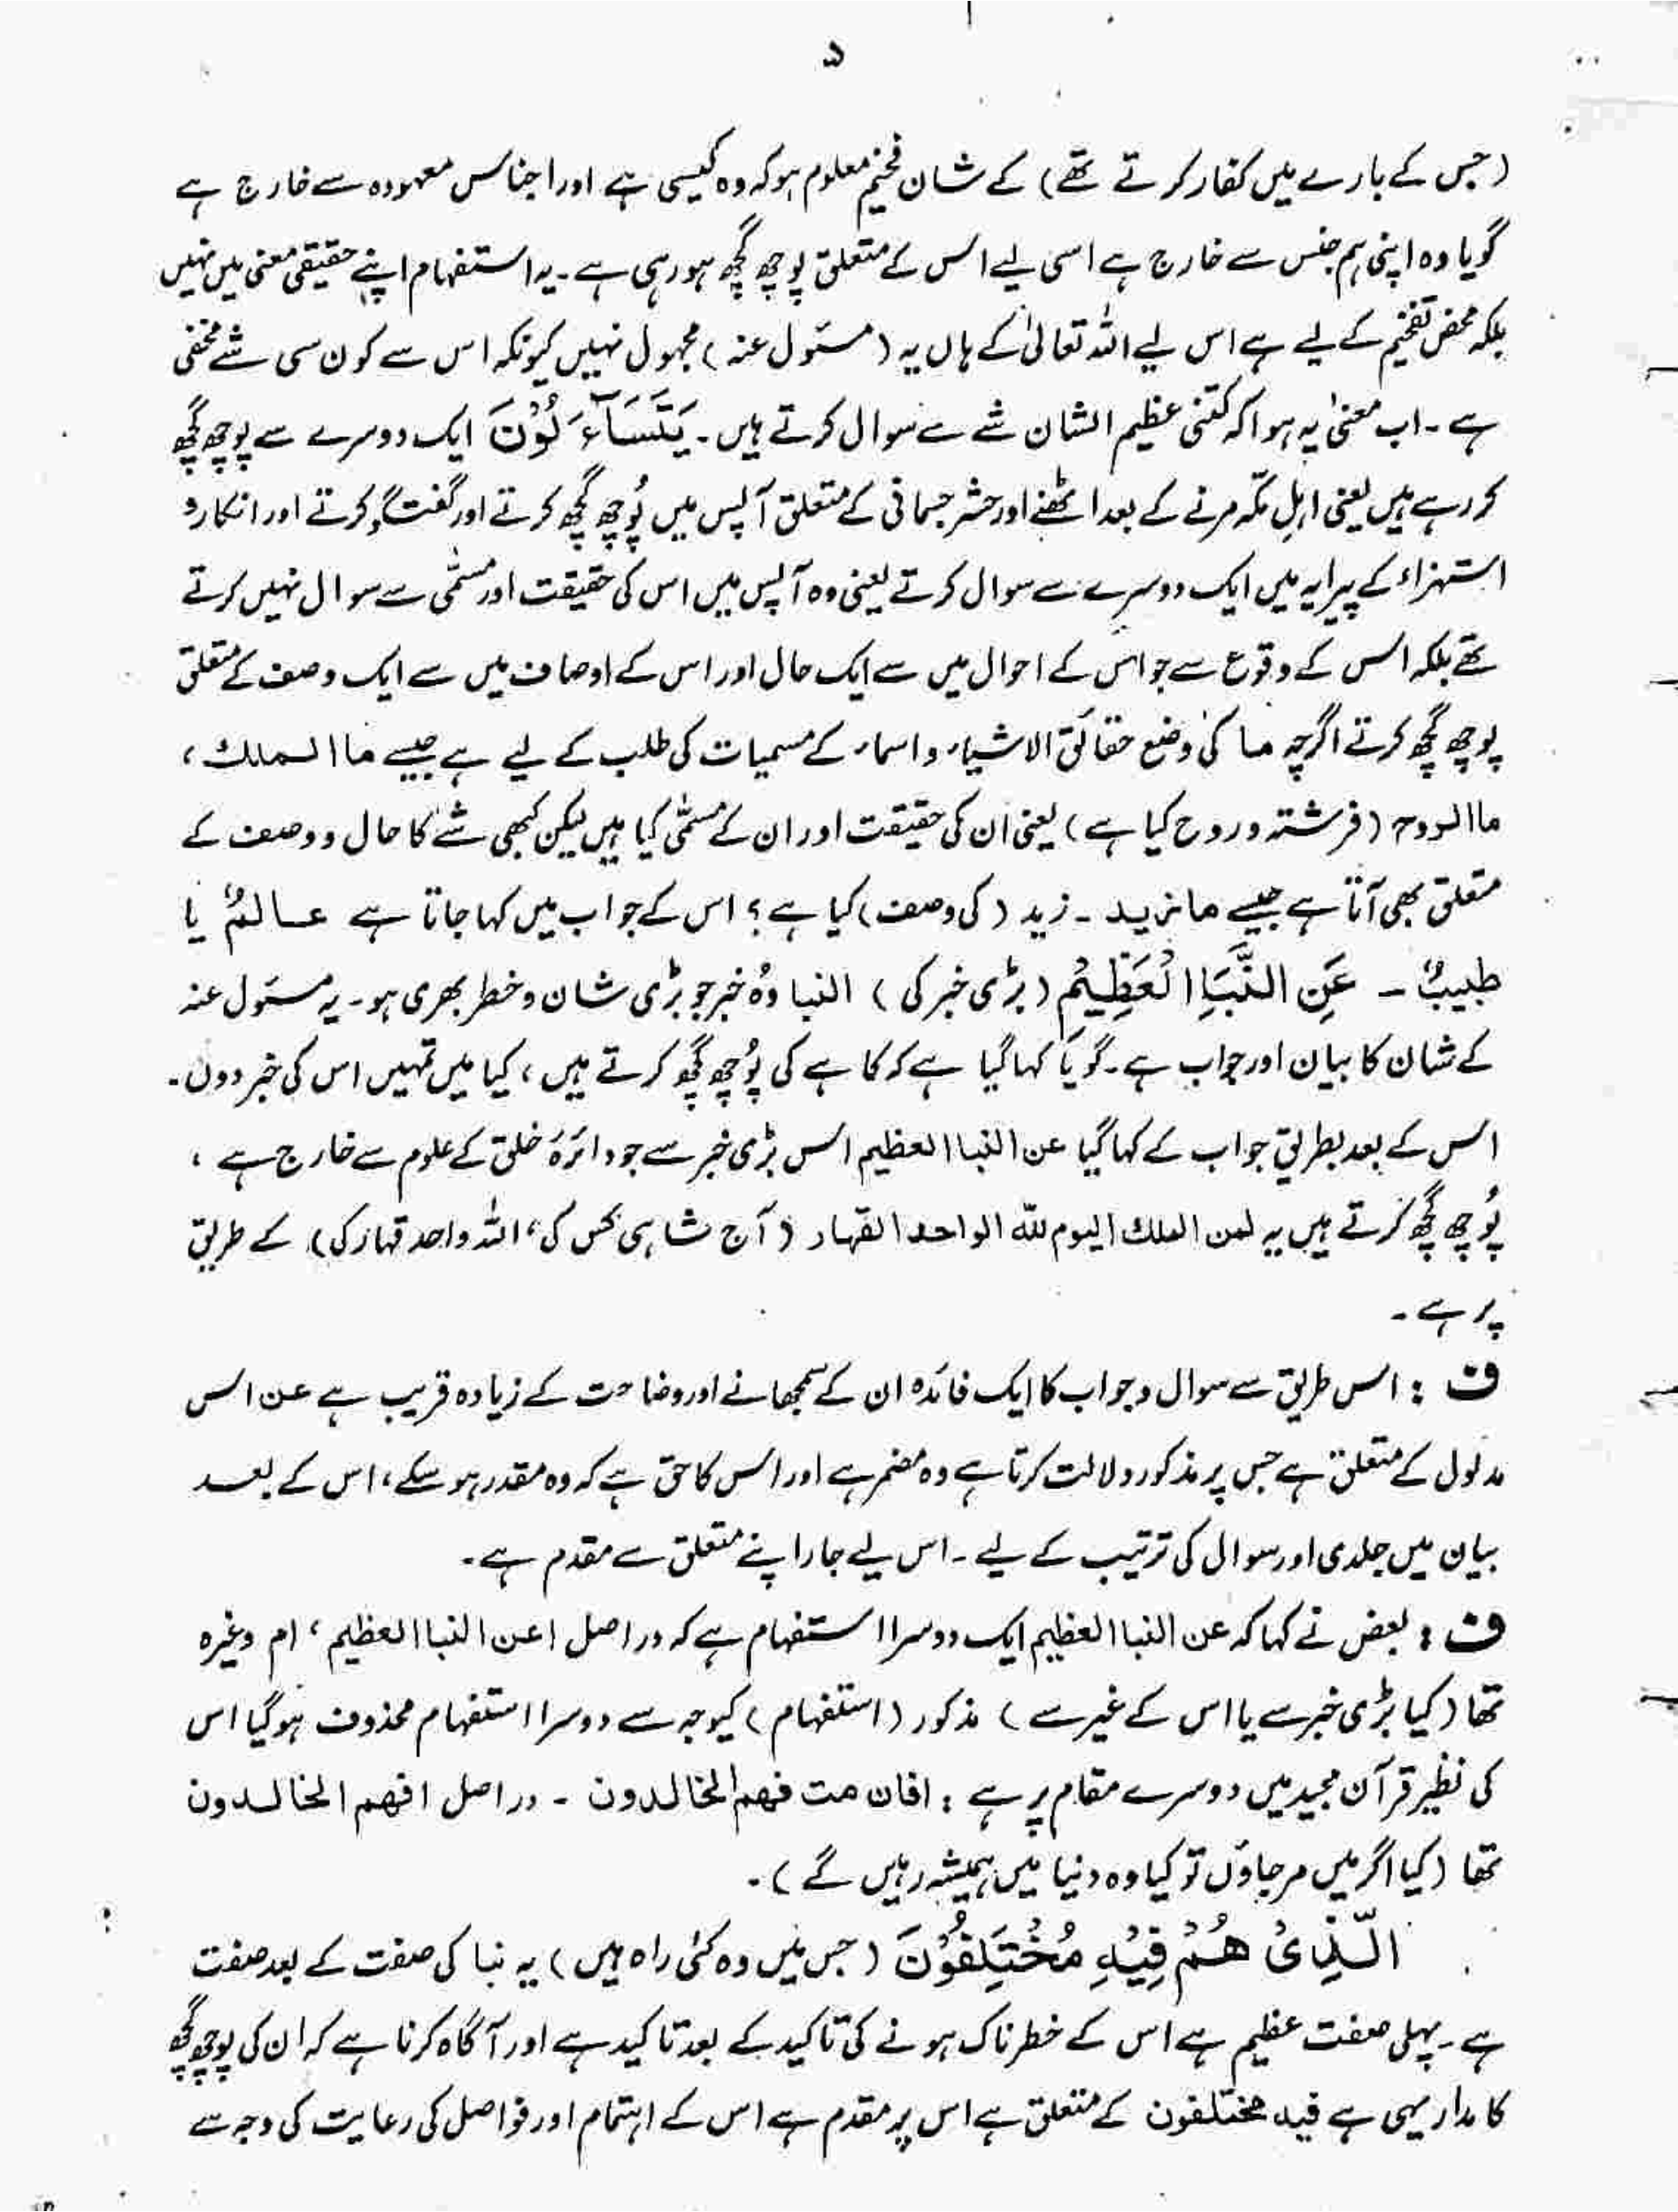 ۵
(جس کے بارے میں کفار کرتے تھے) کے شان فخیم معلوم ہو کہ وہ کیسی ہے اور اجناس معہودہ سے خارج ہے
گویا وہ اپنی ہم جنس سے خارج ہے اسی لیے اس کے متعلق پوچھ گچھ ہو رہی ہے۔ یہ استفہام اپنے حقیقی معنی میں نہیں
بلکہ محض تفخیم کے لیے ہے اس لیے اللہ تعالیٰ کے ہاں یہ (مسئول عنہ) مجہول نہیں کیونکہ اس سے کون سی شے مخفی
ہے۔ اب معنیٰ یہ ہوا کہ کتنی عظیم الشان شے سے سوال کرتے ہیں۔ یَتَسَآءَلُوْنَ ایک دوسرے سے پوچھ گچھ
کر رہے ہیں یعنی اہلِ مکّہ مرنے کے بعد اٹھنے اور حشر جسمانی کے متعلق آپس میں پُوچھ گچھ کرتے اور گفت گو کرتے اور انکار و
استہزاء کے پیرایہ میں ایک دوسرے سے سوال کرتے یعنی وہ آپس میں اس کی حقیقت اور مسمّٰی سے سوال نہیں کرتے
تھے بلکہ اس کے وقوع سے جو اس کے احوال میں سے ایک حال اور اس کے اوصاف میں سے ایک وصف کے متعلق
پوچھ گچھ کرتے اگرچہ ما کی وضع حقائق الاشیاء و اسماء کے مسمیات کی طلب کے لیے ہے جیسے ما الملک ،
ما الروح (فرشتہ و روح کیا ہے) یعنی ان کی حقیقت اور ان کے مسمّٰی کیا ہیں لیکن کبھی شے کا حال و وصف کے
متعلق بھی آتا ہے جیسے ما زید ۔ زید (کی وصف) کیا ہے ؟ اس کے جواب میں کہا جاتا ہے عالمٌ یا
طبیبٌ ۔ عَنِ النَّبَاِ الْعَظِیْمِ (بڑی خبر کی) النبا وہ خبر جو بڑی شان و خطر بھری ہو۔ یہ مسئول عنہ
کے شان کا بیان اور جواب ہے۔ گویا کہا گیا ہے کہ کا ہے کی پُوچھ گچھ کرتے ہیں ، کیا میں تمہیں اس کی خبر دوں۔
اس کے بعد بطریق جواب کے کہا گیا عن النبا العظیم اس بڑی خبر سے جو دائرۂ خلق کے علوم سے خارج ہے ،
پُوچھ گچھ کرتے ہیں یہ لمن الملک الیوم للّٰہ الواحد القہار (آج شاہی کس کی ، اللہ واحد قہار کی) کے طریق
پر ہے۔
ف : اس طریق سے سوال و جواب کا ایک فائدہ ان کے سمجھانے اور وضاحت کے زیادہ قریب ہے عن اس
مدلول کے متعلق ہے جس پر مذکور دلالت کرتا ہے وہ مضمر ہے اور اس کا حق ہے کہ وہ مقدر ہو سکے ، اس کے بعد
بیان میں جلدی اور سوال کی ترتیب کے لیے ۔ اس لیے جار اپنے متعلق سے مقدم ہے۔
ف : بعض نے کہا کہ عن النبا العظیم ایک دوسرا استفہام ہے کہ دراصل اعن النبا العظیم ، ام وغیرہ
تھا (کیا بڑی خبر سے یا اس کے غیر سے) مذکور (استفہام) کیوجہ سے دوسرا استفہام محذوف ہو گیا اس
کی نظیر قرآن مجید میں دوسرے مقام پر ہے : افان مت فہم الخالدون ۔ دراصل افہم الخالدون
تھا (کیا اگر میں مر جاؤں تو کیا وہ دنیا میں ہمیشہ رہیں گے)۔
الَّذِیْ هُمْ فِیْهِ مُخْتَلِفُوْنَ (جس میں وہ کئی راہ ہیں) یہ نبا کی صفت کے بعد صفت
ہے۔ پہلی صفت عظیم ہے اس کے خطرناک ہونے کی تاکید کے بعد تاکید ہے اور آگاہ کرنا ہے کہ ان کی پوچھ گچھ
کا مدار یہی ہے فیہ مختلفون کے متعلق ہے اس پر مقدم ہے اس کے اہتمام اور فواصل کی رعایت کی وجہ سے